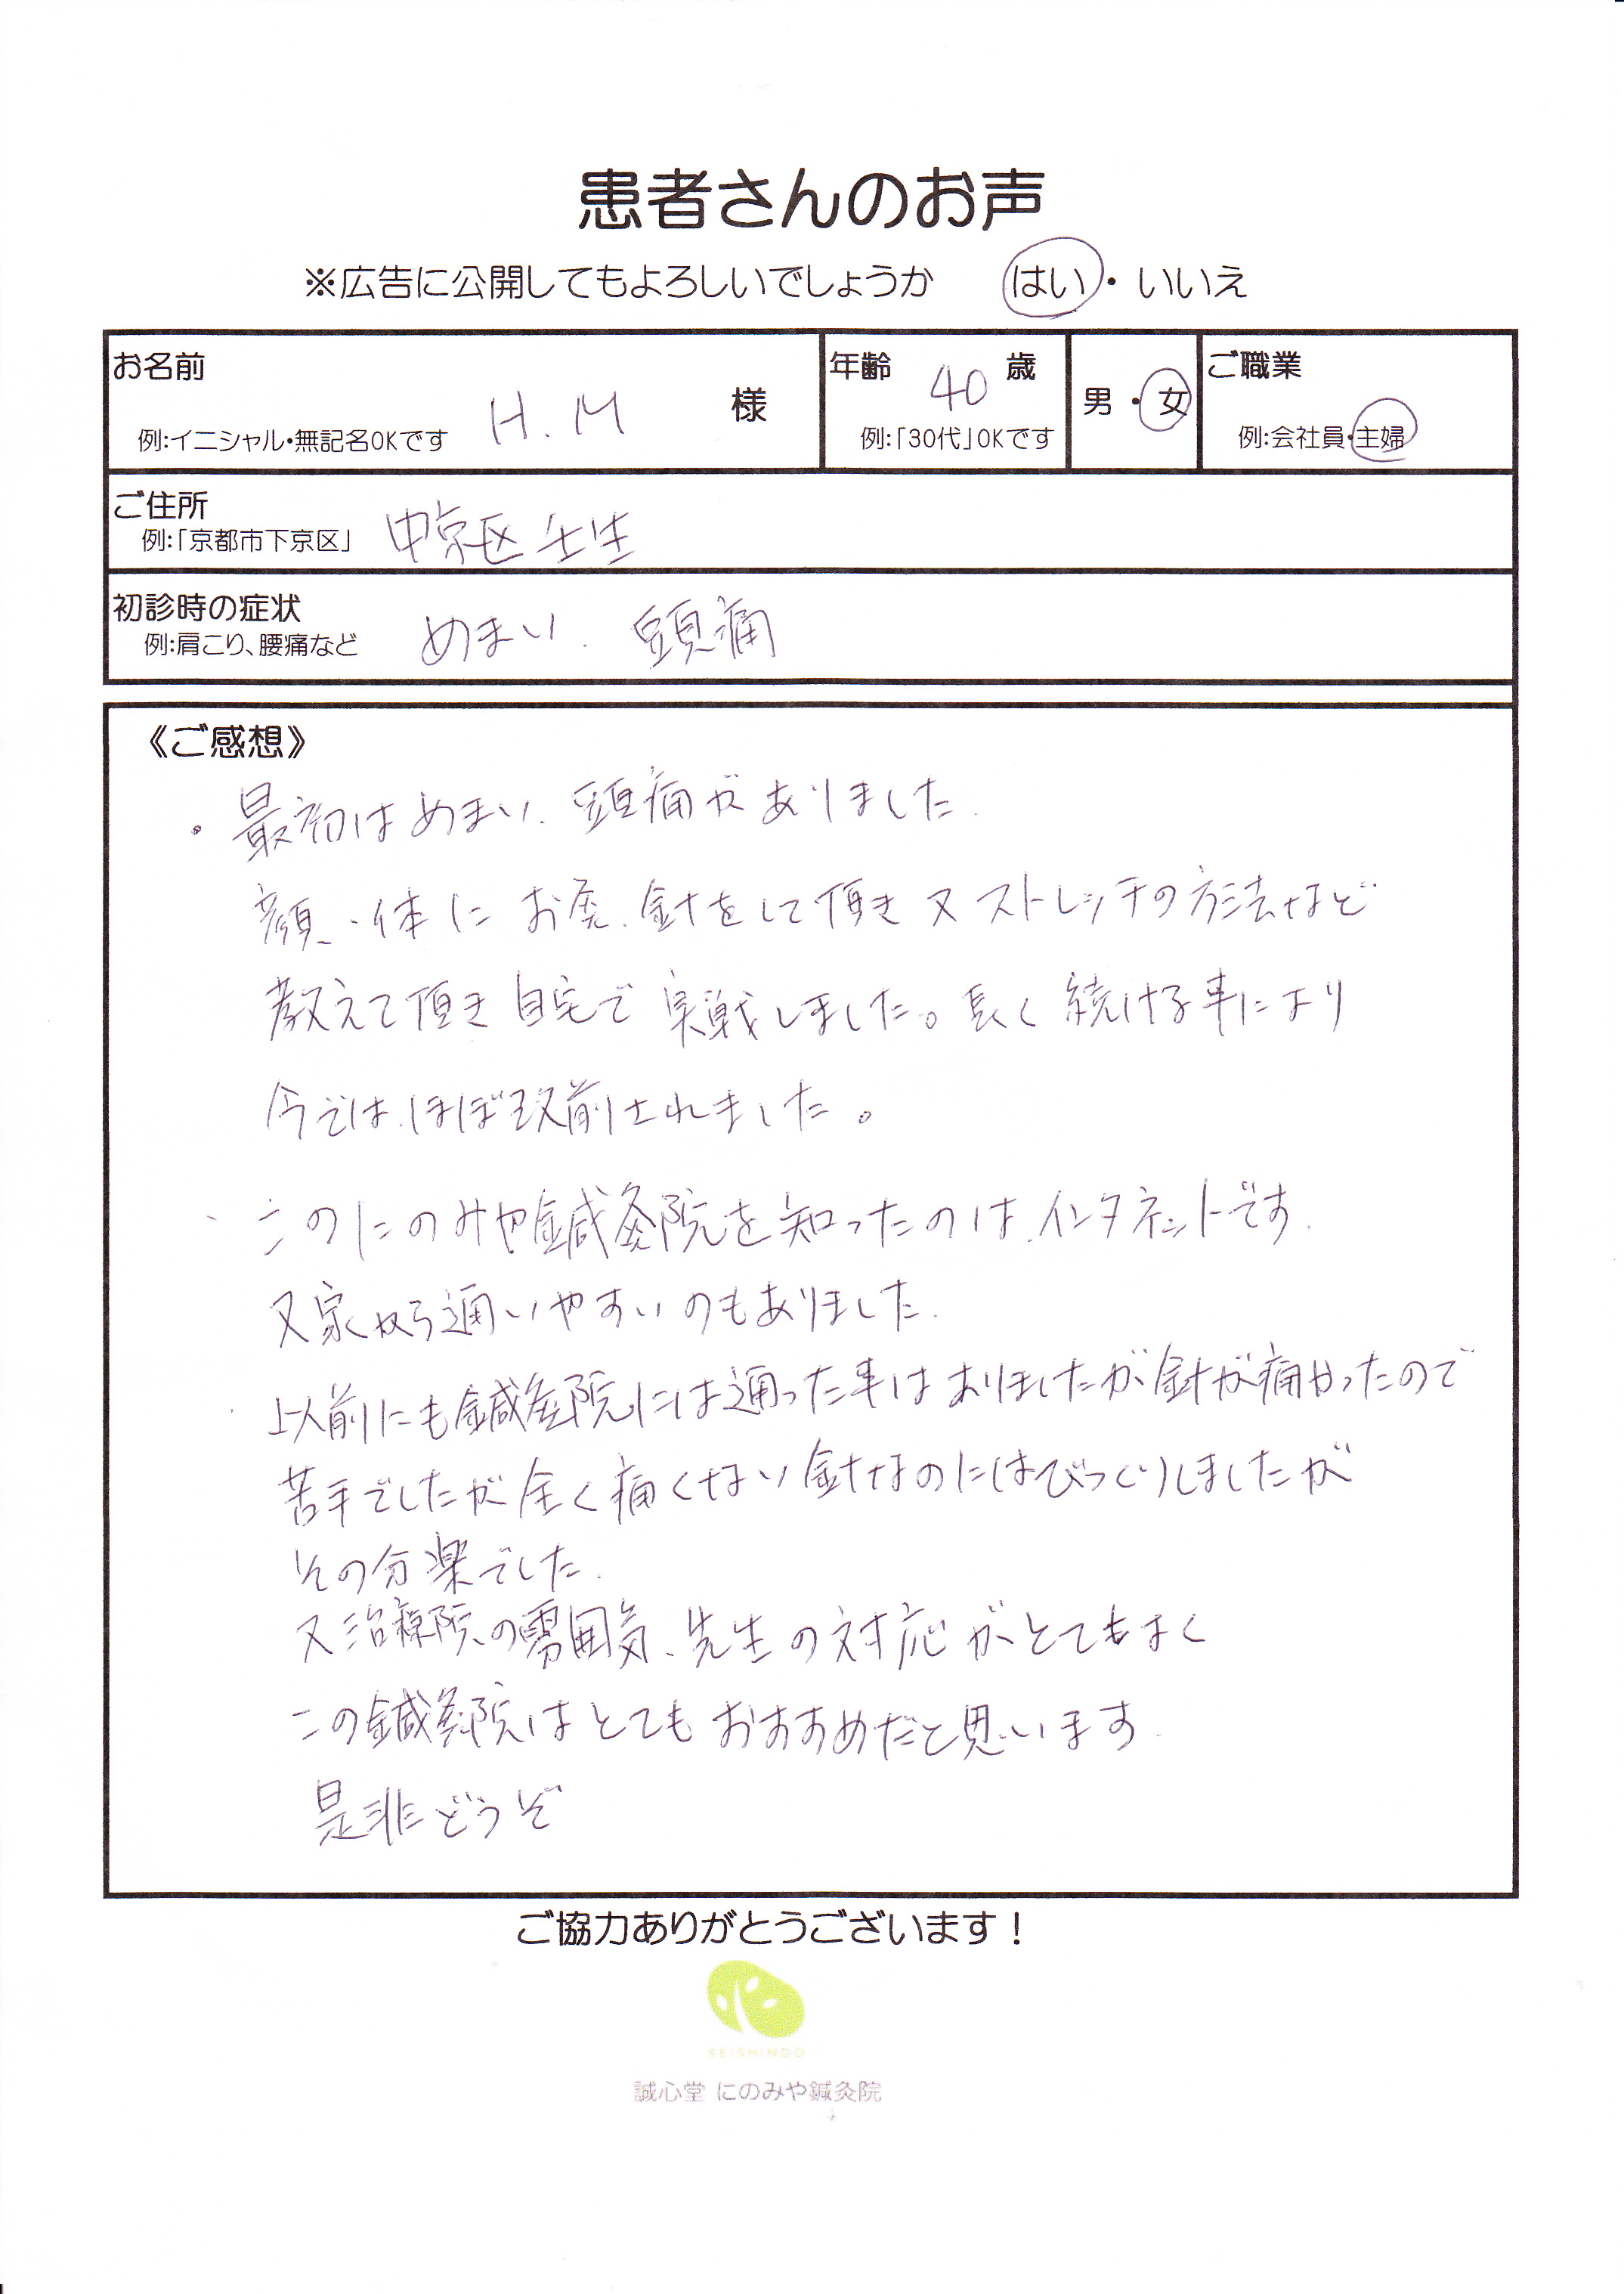 患者さんのお声
※広告に公開してもよろしいでしょうか はい・いいえ
お名前 H.M 様
例:イニシャル・無記名OKです
年齢 40 歳
例:「30代」OKです
男・女
ご職業
例:会社員・主婦
ご住所
例:「京都市下京区」 中京区壬生
初診時の症状
例:肩こり、腰痛など めまい. 頭痛
《ご感想》
・最初はめまい、頭痛がありました.
顔、体にお灸、針をして頂き又ストレッチの方法など
教えて頂き自宅で実戦しました。長く続ける事により
今では、ほぼ改前されました。
・このにのみや鍼灸院を知ったのは、インタネットです.
又家から通いやすいのもありました.
・以前にも鍼灸院には通った事はありましたが針が痛かったので
苦手でしたが全く痛くない針なのにはびっくりしましたが
その分楽でした.
又治療院の雰囲気、先生の対応がとてもよく
この鍼灸院はとてもおすすめだと思います.
是非どうぞ
ご協力ありがとうございます！
SEISHINDO
誠心堂 にのみや鍼灸院